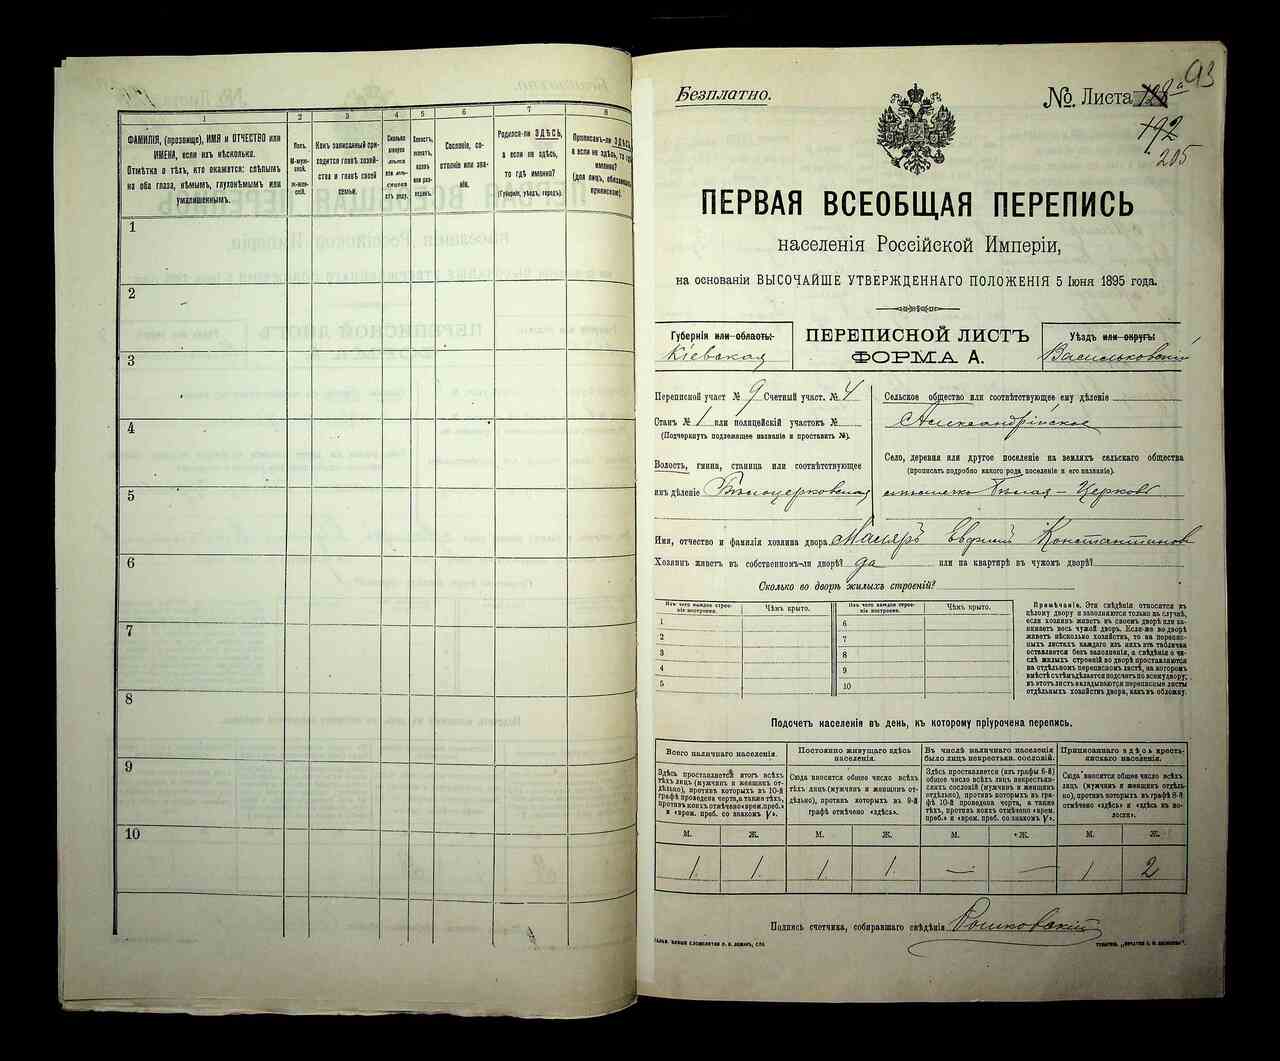 1
2
3
4
5
6
7
8
ФАМИЛІЯ, (прозвище), ИМЯ и ОТЧЕСТВО или
ИМЕНА, если ихъ нѣсколько.
Отмѣтка о тѣхъ, кто окажется: слѣпымъ
на оба глаза, нѣмымъ, глухонѣмымъ или
умалишеннымъ.
Полъ.
М-муж-
ской.
Ж-жен-
скій.
Какъ записанный при-
ходится главѣ хозяй-
ства и главѣ своей
семьи.
Сколько
минуло
лѣтъ
или мѣ-
сяцевъ
отъ роду.
Холостъ,
женатъ,
вдовъ
или раз-
веденъ.
Сословіе, со-
стояніе или зва-
ніе.
Родился-ли ЗДѢСЬ,
а если не здѣсь,
то гдѣ именно?
(Губернія, уѣздъ, городъ).
Приписанъ-ли ЗДѢСЬ,
а если не здѣсь, то гдѣ
именно?
(для лицъ, обязанныхъ
припискою).
1
2
3
4
5
6
7
8
9
10
Безплатно.
№. Листа
93
192
205
ПЕРВАЯ ВСЕОБЩАЯ ПЕРЕПИСЬ
населенія Россійской Имперіи,
на основаніи ВЫСОЧАЙШЕ УТВЕРЖДЕННАГО ПОЛОЖЕНІЯ 5 Іюня 1895 года.
Губернія или область:
Кіевская
ПЕРЕПИСНОЙ ЛИСТЪ
ФОРМА А.
Уѣздъ или округъ:
Васильковскій
Переписной участ № 9 Счетный участ. № 4
Станъ № 1 или полицейскій участокъ №
(Подчеркнуть подлежащее названіе и проставить №).
Волость, гмина, станица или соотвѣтствующее
имъ дѣленіе Бѣлоцерковская
Сельское общество или соотвѣтствующее ему дѣленіе
Александрійское
Село, деревня или другое поселеніе на земляхъ сельскаго общества
(прописать подробно какого рода поселеніе и его названіе).
мѣстечко Бѣлая-Церковь
Имя, отчество и фамилія хозяина двора Маляръ Евфимій Константиновъ
Хозяинъ живетъ въ собственномъ-ли дворѣ? да или на квартирѣ въ чужомъ дворѣ?
Сколько во дворѣ жилыхъ строеній?
Изъ чего каждое строе-
ніе построено.
Чѣмъ крыто.
Изъ чего каждое строе-
ніе построено.
Чѣмъ крыто.
1
2
3
4
5
6
7
8
9
10
Примѣчаніе. Эти свѣдѣнія относятся къ
цѣлому двору и заполняются только въ случаѣ,
если хозяинъ живетъ въ своемъ дворѣ или за-
нимаетъ весь чужой дворъ. Если-же во дворѣ
живетъ нѣсколько хозяйствъ, то на перепис-
ныхъ листахъ каждаго изъ нихъ эта табличка
оставляется безъ заполненія, а свѣдѣнія о чи-
слѣ жилыхъ строеній во дворѣ проставляются
на отдѣльномъ переписномъ листѣ, на которомъ
вмѣстѣ съ тѣмъ дѣлается подсчетъ по всему двору;
въ этотъ листъ вкладываются переписные листы
отдѣльныхъ хозяйствъ двора, какъ въ обложку.
Подсчетъ населенія въ день, къ которому пріурочена перепись.
Всего наличнаго населенія.
Здѣсь проставляется итогъ всѣхъ
тѣхъ лицъ (мужчинъ и женщинъ от-
дѣльно), противъ которыхъ въ 10-й
графѣ проведена черта, а также тѣхъ,
противъ коихъ отмѣчено «врем. преб.»
и «врем. преб. со знакомъ V».
Постоянно живущаго здѣсь
населенія.
Сюда вносится общее число всѣхъ
тѣхъ лицъ (мужчинъ и женщинъ от-
дѣльно), противъ которыхъ въ 9-й
графѣ отмѣчено «здѣсь».
Въ числѣ наличнаго населенія
было лицъ некрестьян. сословій.
Здѣсь проставляется (изъ графы 6-й)
общее число всѣхъ лицъ некрестьян-
скихъ сословій (мужчинъ и женщинъ от-
дѣльно), противъ которыхъ въ гра-
фѣ 10-й проведена черта, а также
тѣхъ, противъ коихъ отмѣчено «врем.
преб.» и «врем. преб. со знакомъ V».
Приписаннаго здѣсь кресть-
янскаго населенія.
Сюда вносится общее число всѣхъ
лицъ (мужчинъ и женщинъ отдѣль-
но), противъ которыхъ въ графѣ 8-й
отмѣчено «здѣсь» и «здѣсь въ во-
лости».
М. Ж. М. Ж. М. Ж. М. Ж.
1 1 1 1 — — 1 2
Подпись счетчика, собиравшаго свѣдѣнія